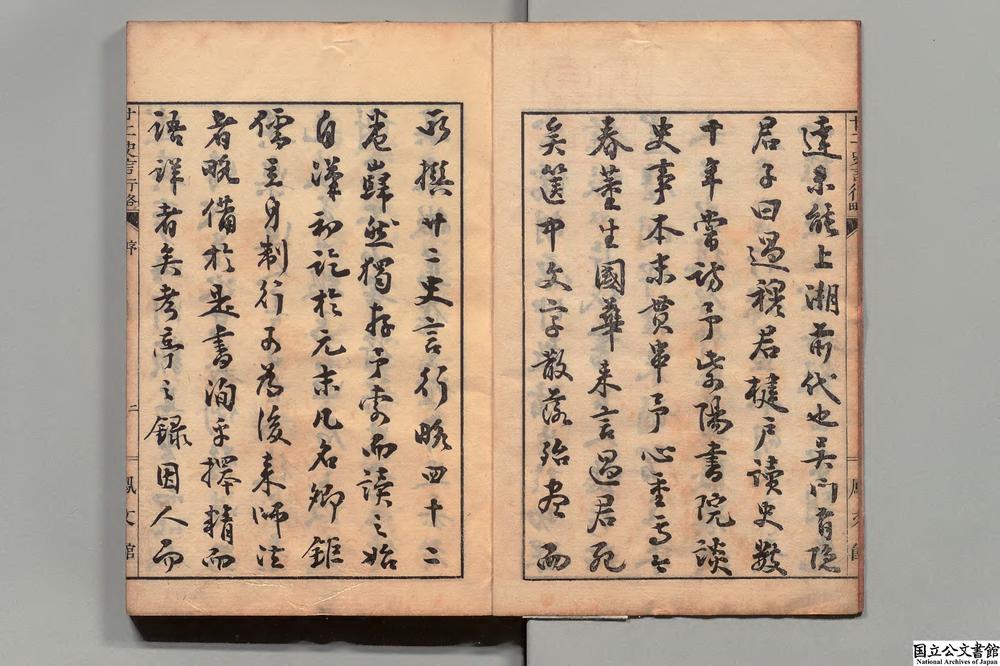 廿二史言行略
達未能上溯前代也吳门有隐
君子曰過穆君楗戶讀史數
十年嘗訪予紫陽書院談
史事本末貫串予心重焉今
春董生國華来言過君死
矣篋中文字散落殆盡而
鳳文館
所撰廿二史言行略四十二
卷巋然獨存予索而讀之始
自漢初訖於元末凡名卿鉅
儒立身制行可為後来師法
者略備於是書洵乎擇精而
語詳者矣考亭之録因人而
廿二史言行略
序
二
鳳文館
国立公文書館
National Archives of Japan